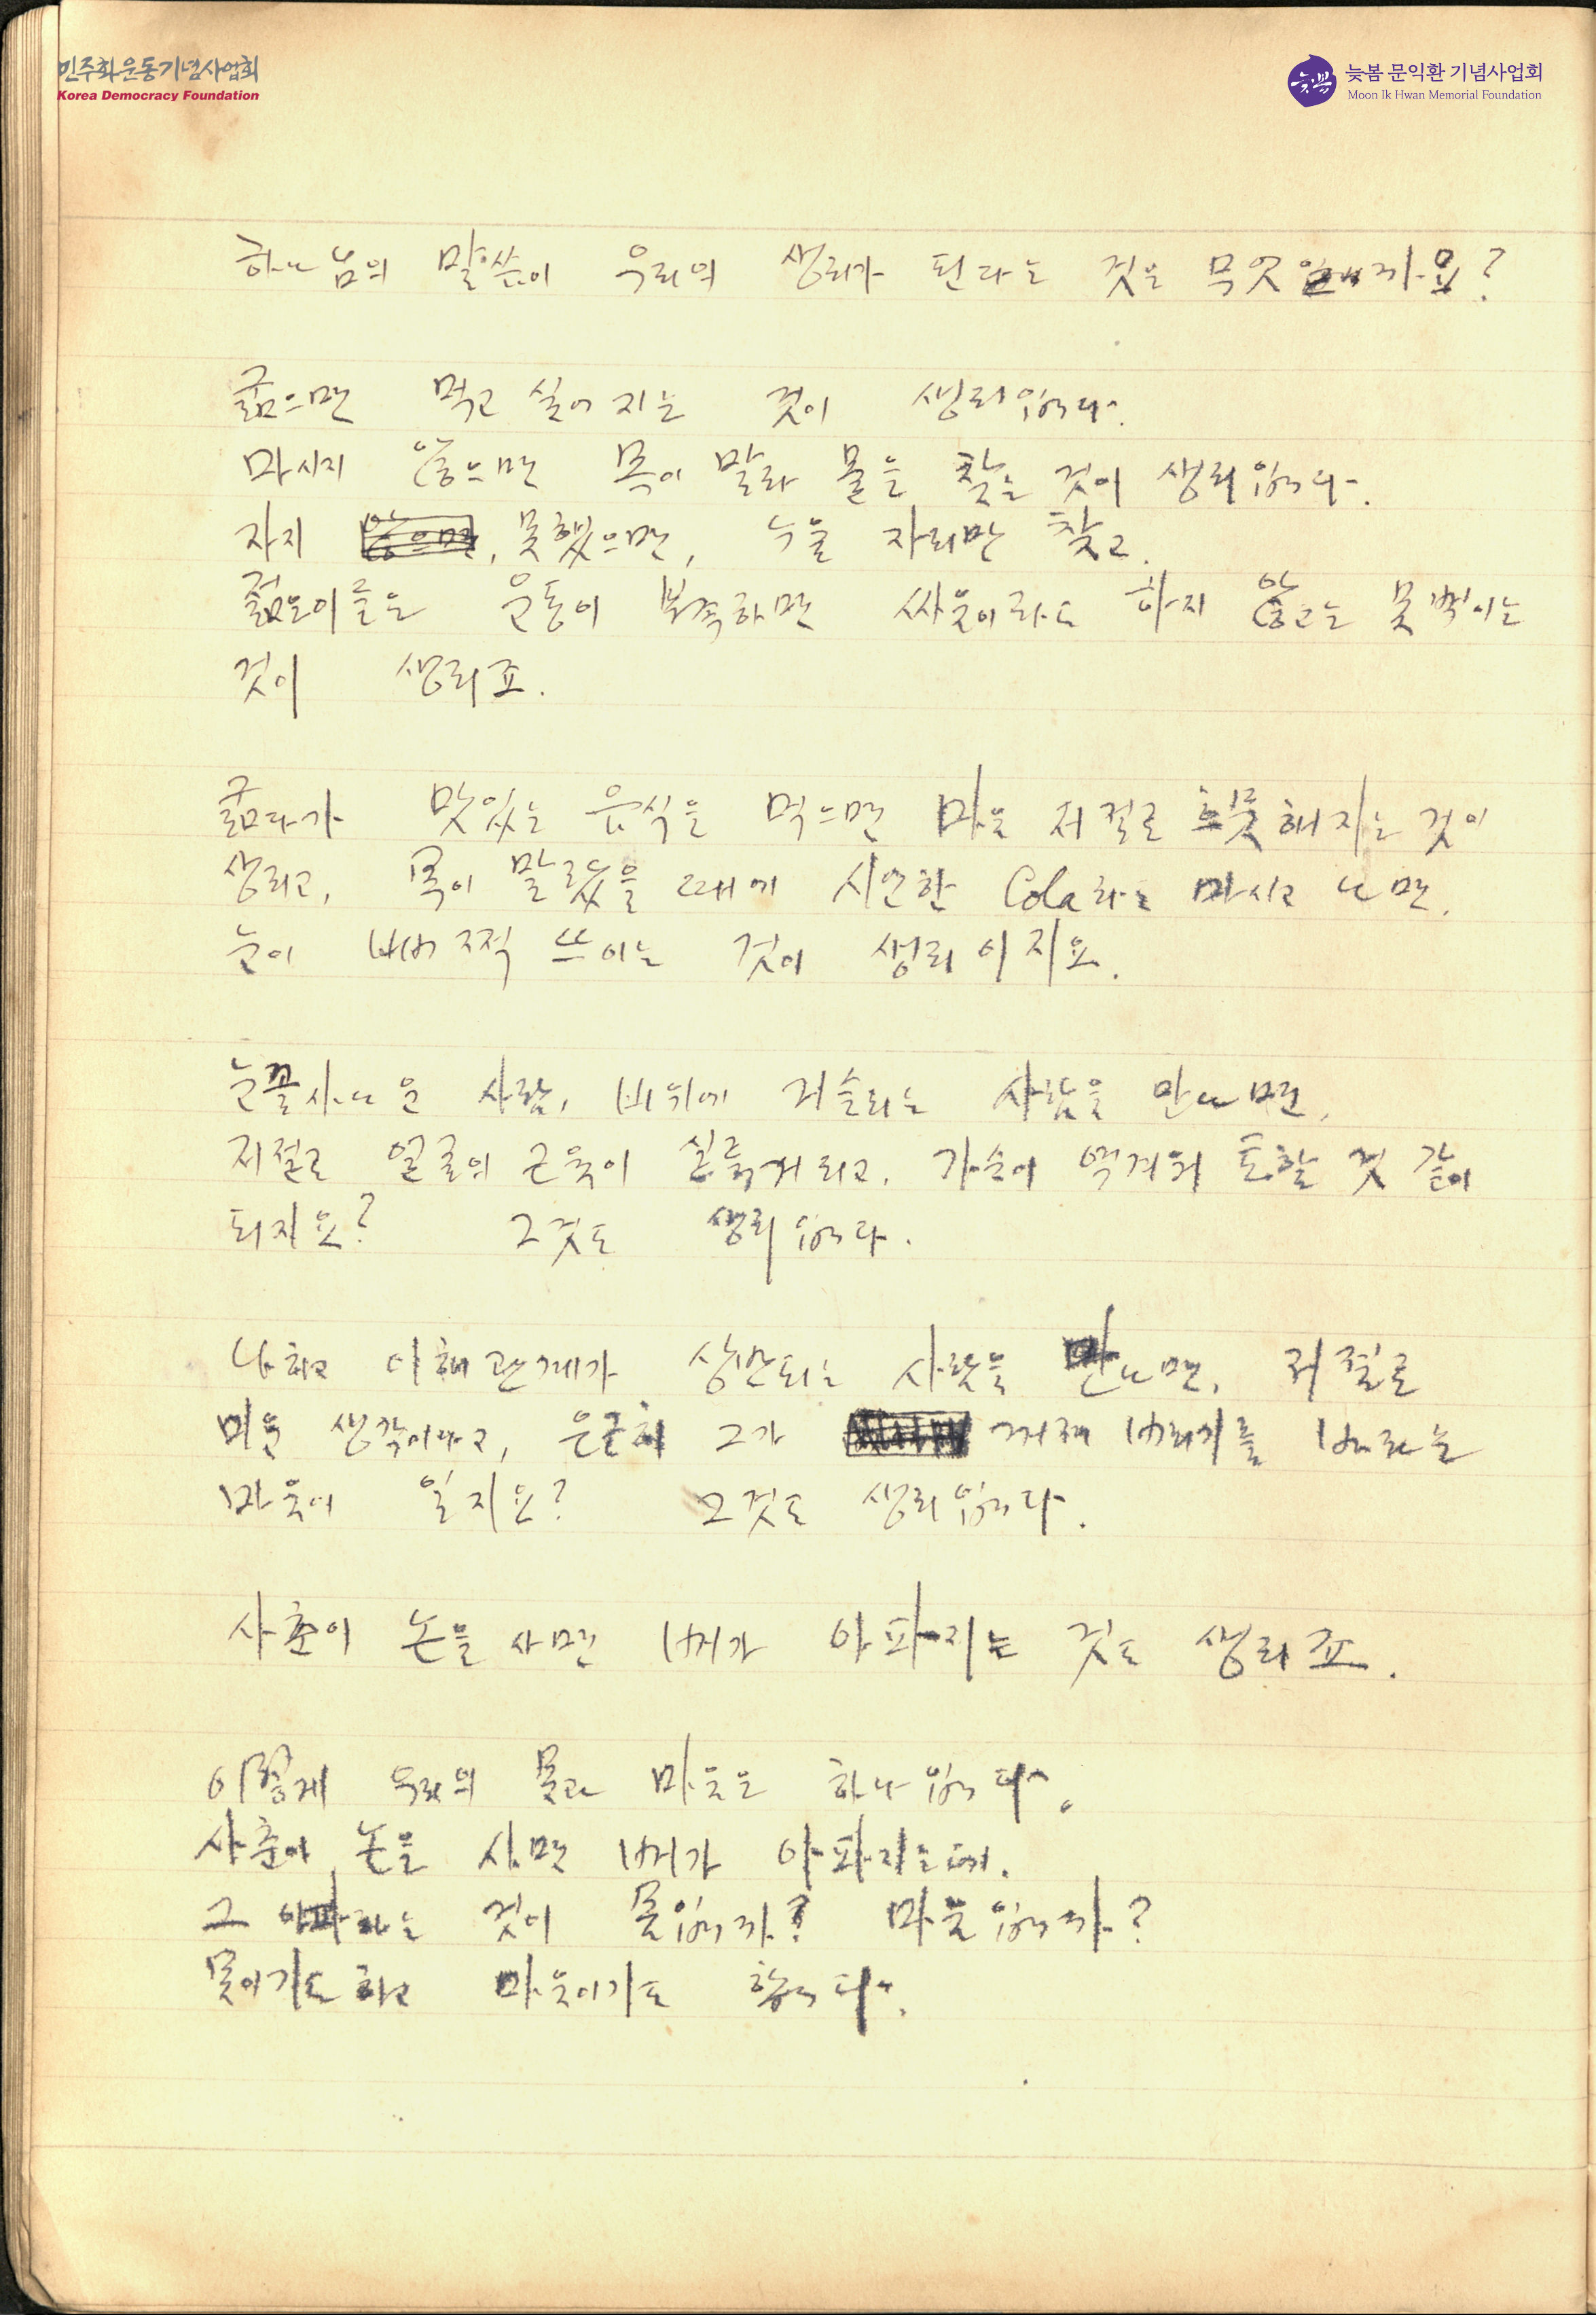 민주화운동기념사업회
Korea Democracy Foundation
늦봄
늦봄 문익환 기념사업회
Moon Ik Hwan Memorial Foundation
하나님의 말씀이 우리의 생리가 된다는 것은 무엇일까요?
굶으면 먹고 싶어 지는 것이 생리입니다.
마시지 않으면 목이 말라 물을 찾는 것이 생리입니다.
자지 않으면, 못했으면, 누울 자리만 찾고.
젊은이들은 운동이 부족하면 싸움이라도 하지 않고는 못 백이는
것이 생리죠.
굶다가 맛있는 음식을 먹으면 마음 저절로 흐뭇해지는 것이
생리고, 목이 말랐을 때에 시언한 Cola라도 마시고 나면,
눈이 버쩍 뜨이는 것이 생리이지요.
눈꼴사나운 사람, 비위에 거슬리는 사람을 만나면,
저절로 얼굴의 근육이 실룩거리고, 가슴이 역겨워 토할 것 같이
되지요? 그것도 생리입니다.
나하고 이해관계가 상반되는 사람을 만나면, 저절로
미운 생각이나고, 은근히 그가 꺼져 버리기를 바라는
마음이 일지요? 그것도 생리입니다.
사춘이 논을 사면 배가 아파지는 것도 생리죠.
이렇게 우리의 몸과 마음은 하나입니다.
사춘이 논을 사면 배가 아파지는데.
그 아파하는 것이 몸입니까? 마음입니까?
몸이기도 하고 마음이기도 합니다.